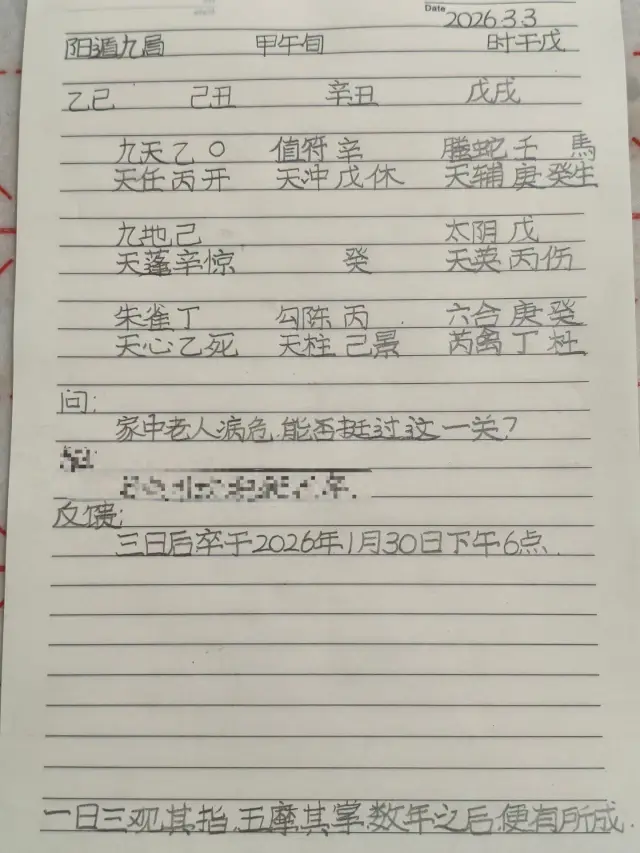 Date 2026.3.3
阳遁九局 甲午旬 时干戊
乙巳 己丑 辛丑 戊戌
九天乙〇 值符辛 螣蛇壬 馬
天任丙开 天冲戊休 天辅庚癸生
九地己 太阴戊
天蓬辛惊 癸 天英丙伤
朱雀丁 勾陈丙 六合庚癸
天心乙死 天柱己景 芮禽丁杜
问:
家中老人病危,能否挺过这一关?
反馈:
三日后卒于2026年1月30日下午6点.
一日三观其指,五摩其掌,数年之后,便有所成.